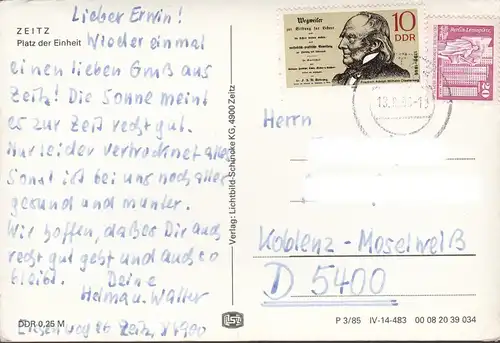 ZEITZ
Platz der Einheit
Lieber Erwin!
Wieder einmal
einen lieben Gruß aus
Zeitz! Die Sonne meint
es zur Zeit recht gut.
Nur leider vertrocknet alles
Sonst ist bei uns noch alles
gesund und munter.
Wir hoffen, daß es Dir auch
recht gut geht und auch so
bleibt. Deine
Helma u. Walter
Zeitz, 4900
DDR 0,25 M
Verlag: Lichtbild-Schincke KG, 4900 Zeitz
Wegweiser
zur Bildung für Lehrer
10
DDR
20
Herrn
Koblenz - Moselweiß
D 5400
P 3/85 IV-14-483 00 08 20 39 034